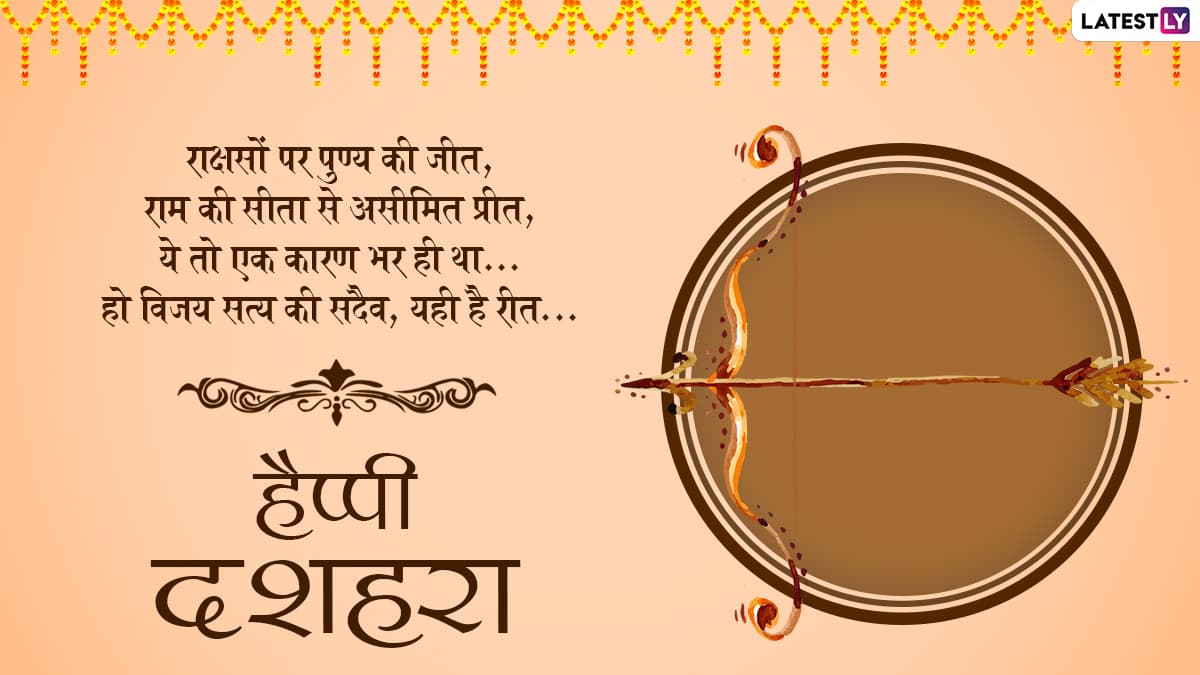 LATESTLY
राक्षसों पर पुण्य की जीत,
राम की सीता से असीमित प्रीत,
ये तो एक कारण भर ही था...
हो विजय सत्य की सदैव, यही है रीत...
हैप्पी
दशहरा